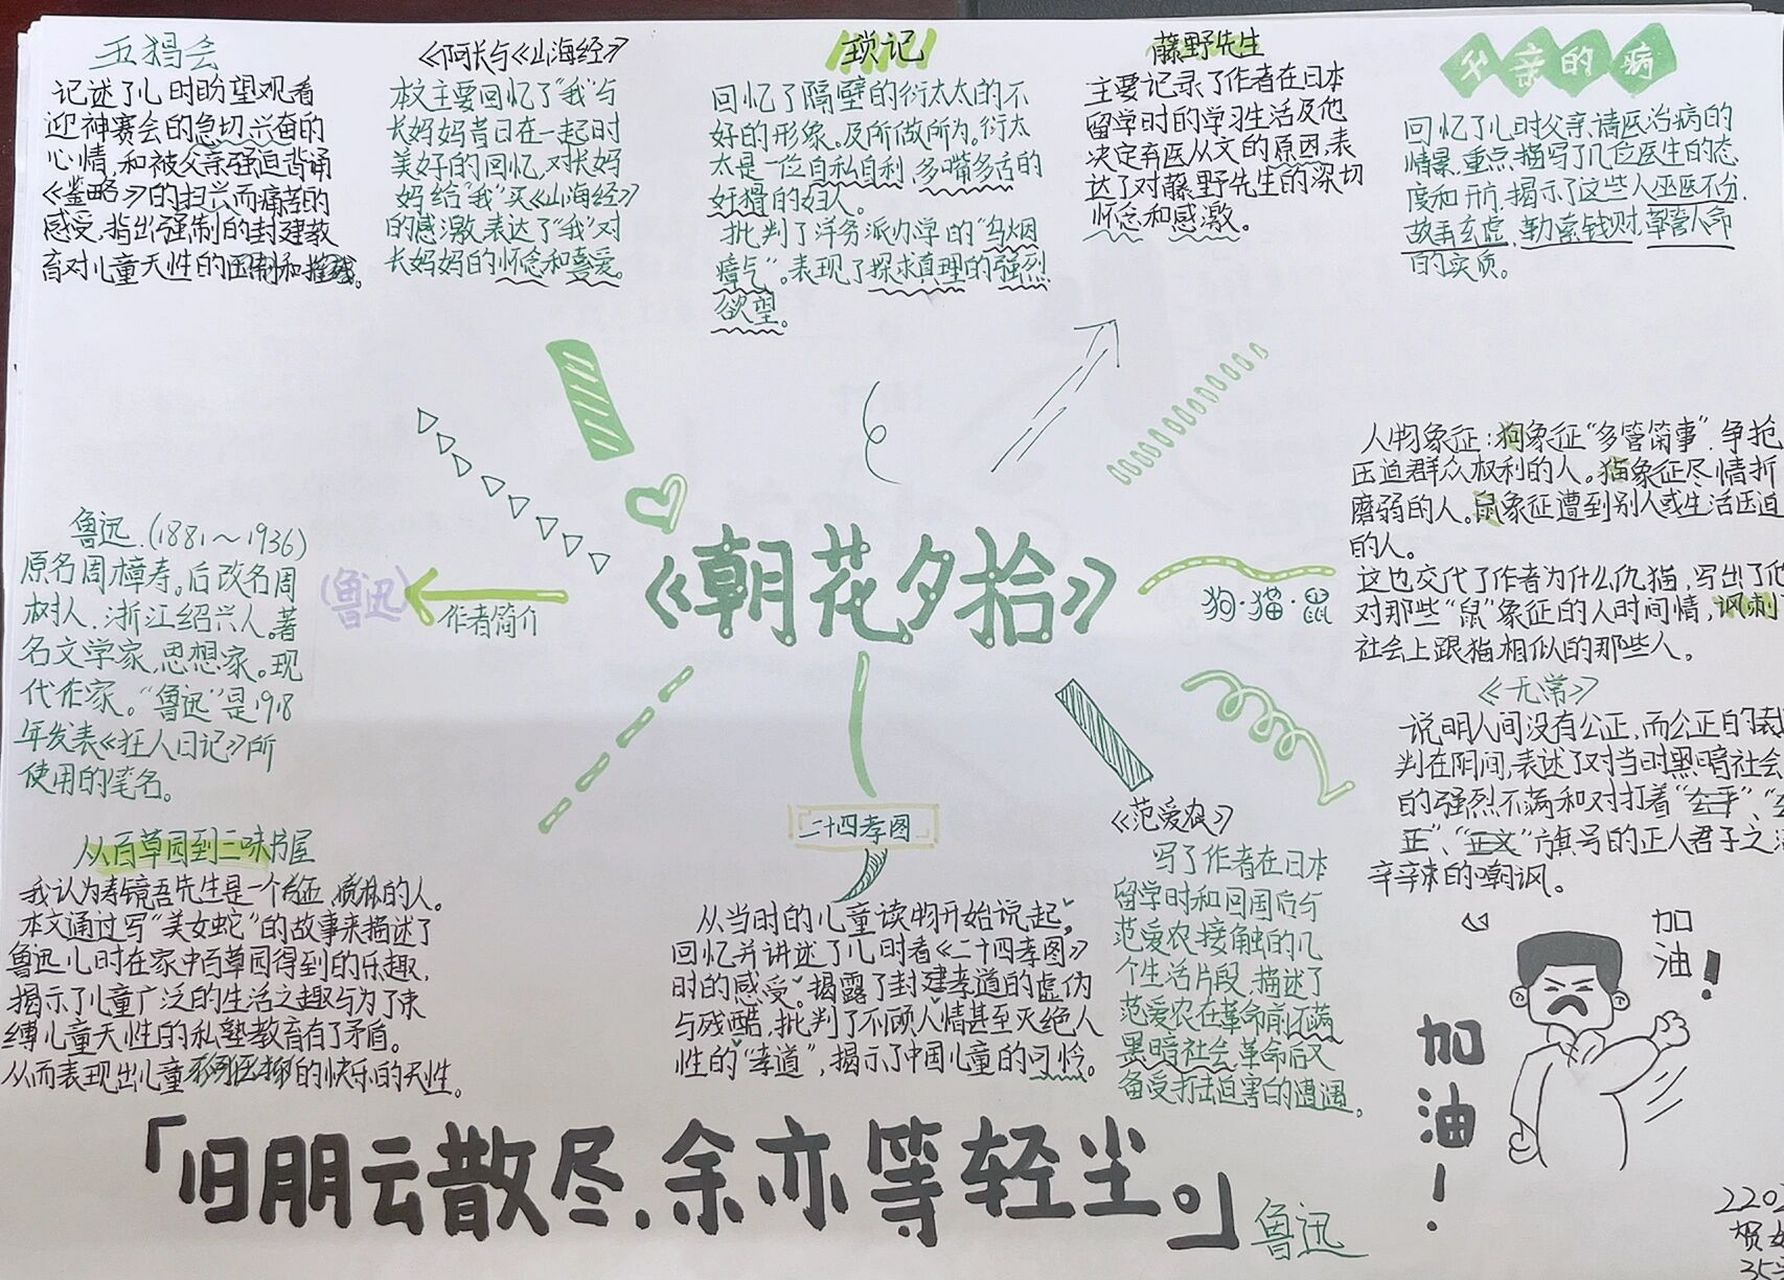 五猖会
记述了儿时盼望观看
迎神赛会的急切.兴奋的
心情,和被父亲强迫背诵
《鉴略》的扫兴而痛苦的
感受,指出强制的封建教
育对儿童天性的压制和摧残。
《阿长与《山海经》
本文主要回忆了“我”与
长妈妈昔日在一起时
美好的回忆,对长妈
妈给“我”买《山海经》
的感激,表达了“我”对
长妈妈的怀念和喜爱。
琐记
回忆了隔壁的衍太太的不
好的形象.及所做所为.衍太
太是一位自私自利,多嘴多舌的
奸猾的妇人。
批判了洋务派办学的“乌烟
瘴气”。表现了探求真理的强烈
欲望。
藤野先生
主要记录了作者在日本
留学时的学习生活及他
决定弃医从文的原因,表
达了对藤野先生的深切
怀念和感激。
父亲的病
回忆了儿时父亲请医治病的
情景,重点描写了几位医生的态
度和开方,揭示了这些人巫医不分.
故弄玄虚,勒索钱财,草管人命
的实质。
《朝花夕拾》
(鲁迅)
作者简介
鲁迅.(1881～1936)
原名周樟寿。后改名周
树人.浙江绍兴人。著
名文学家,思想家。现
代作家。“鲁迅”是1918
年发表《狂人日记》所
使用的笔名。
狗·猫·鼠
人物象征:狗象征“多管闲事”.争抢
压迫群众权利的人。猫象征尽情折
磨弱的人。鼠象征遭到别人或生活压迫
的人。
这也交代了作者为什么仇猫,写出了他
对那些“鼠”象征的人时间情,讽刺
社会上跟猫相似的那些人。
《无常》
说明人间没有公正,而公正的裁
判在阴间,表述了对当时黑暗社会
的强烈不满和对打着“
正”、“正文”旗号的正人君子之
辛辛辣的嘲讽。
从百草园到三味书屋
我认为寿镜吾先生是一个方正,质朴的人。
本文通过写“美女蛇”的故事来描述了
鲁迅儿时在家中百草园得到的乐趣,
揭示了儿童广泛的生活之趣与为了束
缚儿童天性的私塾教育有了矛盾。
从而表现出儿童不可压抑的快乐的天性。
二十四孝图
从当时的儿童读物开始说起,
回忆并讲述了儿时看《二十四孝图》
时的感受。揭露了封建孝道的虚伪
与残酷,批判了不顾人情甚至灭绝人
性的“孝道”,揭示了中国儿童的可怜.
《范爱农》
写了作者在日本
留学时和回国后与
范爱农接触的几
个生活片段,描述了
范爱农在革命前不满
黑暗社会革命后又
备受打击迫害的遭遇。
加
油!
加
油!
「旧朋云散尽,余亦等轻尘。」
鲁迅